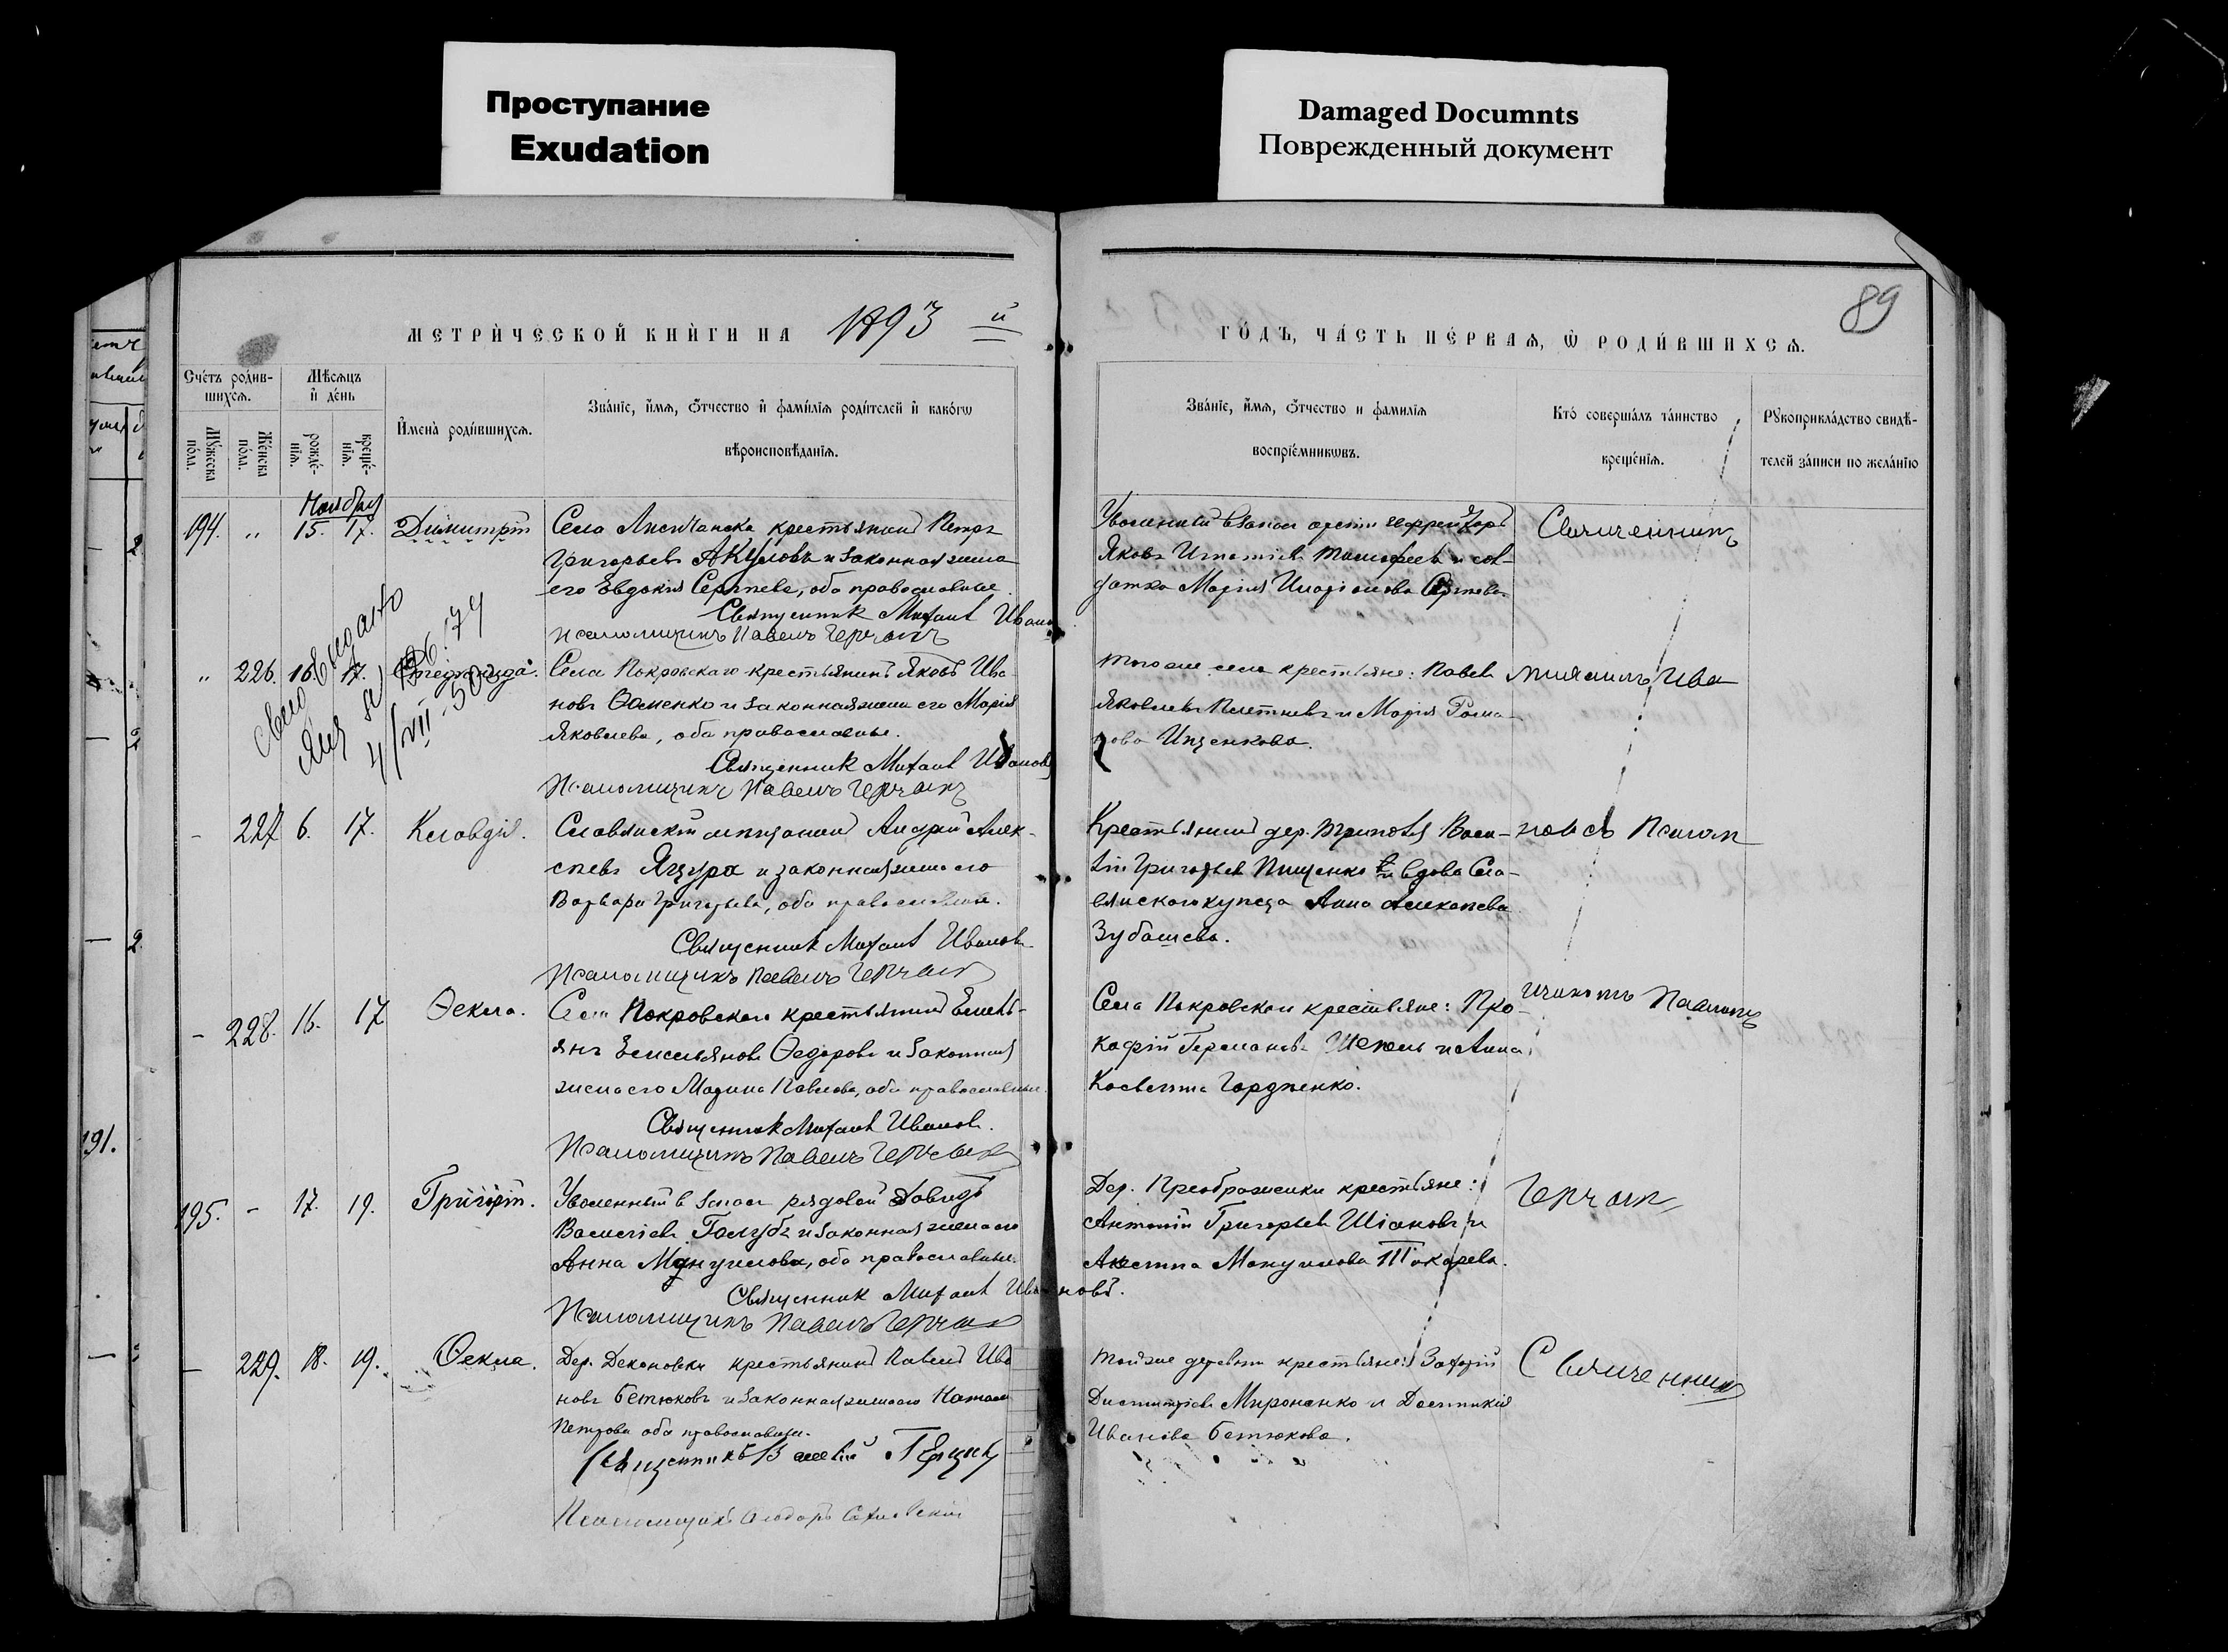 Проступание
Exudation
Damaged Documnts
Поврежденный документ
МЕТРИ́ЧЕСКОЙ КНИ́ГИ НА 1893 й
ГО́ДЪ, ЧА́СТЬ ПЕ́РВАѦ, Ѡ РОДИ́ВШИХСѦ.
89
Сче́тъ роди́в-
шихсѧ.
Мѣ́сѧцъ
и҆ де́нь
Мꙋ́жеска
по́ла.
Же́нска
по́ла.
рожде́-
нїѧ.
креще́-
нїѧ.
И҆мена̀ роди́вшихсѧ.
Зва́нїе, и҆́мѧ, ѻ҆́тчество и҆ фами́лїѧ роди́телей и҆ како́гѡ
вѣроисповѣ́данїѧ.
Зва́нїе, и҆́мѧ, ѻ҆́тчество и фами́лїѧ
воспрїе́мникѡвъ.
Кто̀ соверша́лъ та́инство
креще́нїѧ.
Рꙋкоприкла́дство свидѣ́-
телей за́писи по жела́нїю
Ноябрь
194. " 15. 17. Димитрій
Села Лисичанска крестьянинъ Петръ
Григорьевъ Акуловъ и законная жена
его Евдокия Сергѣева, оба православные.
Священник Михаилъ Иванов
Псаломщикъ Павелъ
Яковъ Игнатіев Тимофеев и сол-
датка Марія Сергѣева
Священникъ
" 226. 16. 17.
Села Покровскаго крестьянинъ Яковъ Ива-
новъ Ѳоменко и законная жена его Марія
Яковлева, оба православные.
Священник Михаил Ивановъ
Псаломщикъ Павелъ
4/VII-50
Того же села крестьяне: Павел
Яковлевъ Плетневъ и Марія Рома-
нова Ищенкова.
Михаилъ Ива
- 227 6. 17. Клавдія.
Славянскій мѣщанинъ Андрей Алек-
сѣевъ Яцура и законная жена его
Варвара Григорьева, оба православные.
Священник Михаил Иванов
Псаломщикъ Павелъ
Крестьянинъ дер. Васи-
лій Григорьев Пищенко и вдова Сла-
вянскаго купца Анна Алексѣева
Зубашева.
новъ съ Псалом
- 228. 16. 17 Ѳекла.
Села Покровскаго крестьянинъ Емель-
янъ Емельянов Ѳедоровъ и законная
жена его Марина Павлова, оба православные.
Священник Михаил Иванов.
Псаломщикъ Павелъ
Села Покровскаго крестьяне: Про-
кофій Германовъ и Анна
Гордѣенко.
щикомъ Павломъ
195. - 17. 19. Григорій.
Уволенный в запас рядовой Давидъ
Василіевъ Голубъ и законная жена его
Анна Мануилова, оба православные.
Священник Михаил Ивановъ.
Псаломщикъ Павелъ
Дер. Преображенки крестьяне:
Антоній Григорьев и
Мануилова Токарева.
- 229. 18. 19. Ѳекла.
Дер. Декановки крестьянинъ Павелъ Ива
новъ Бетюковъ и законная жена его
Петрова оба православные.
Священникъ
Псаломщикъ
Той же деревни крестьяне: Захарій
Димитріев Мироненко и Домникія
Иванова Бетюкова.
Священник
191.